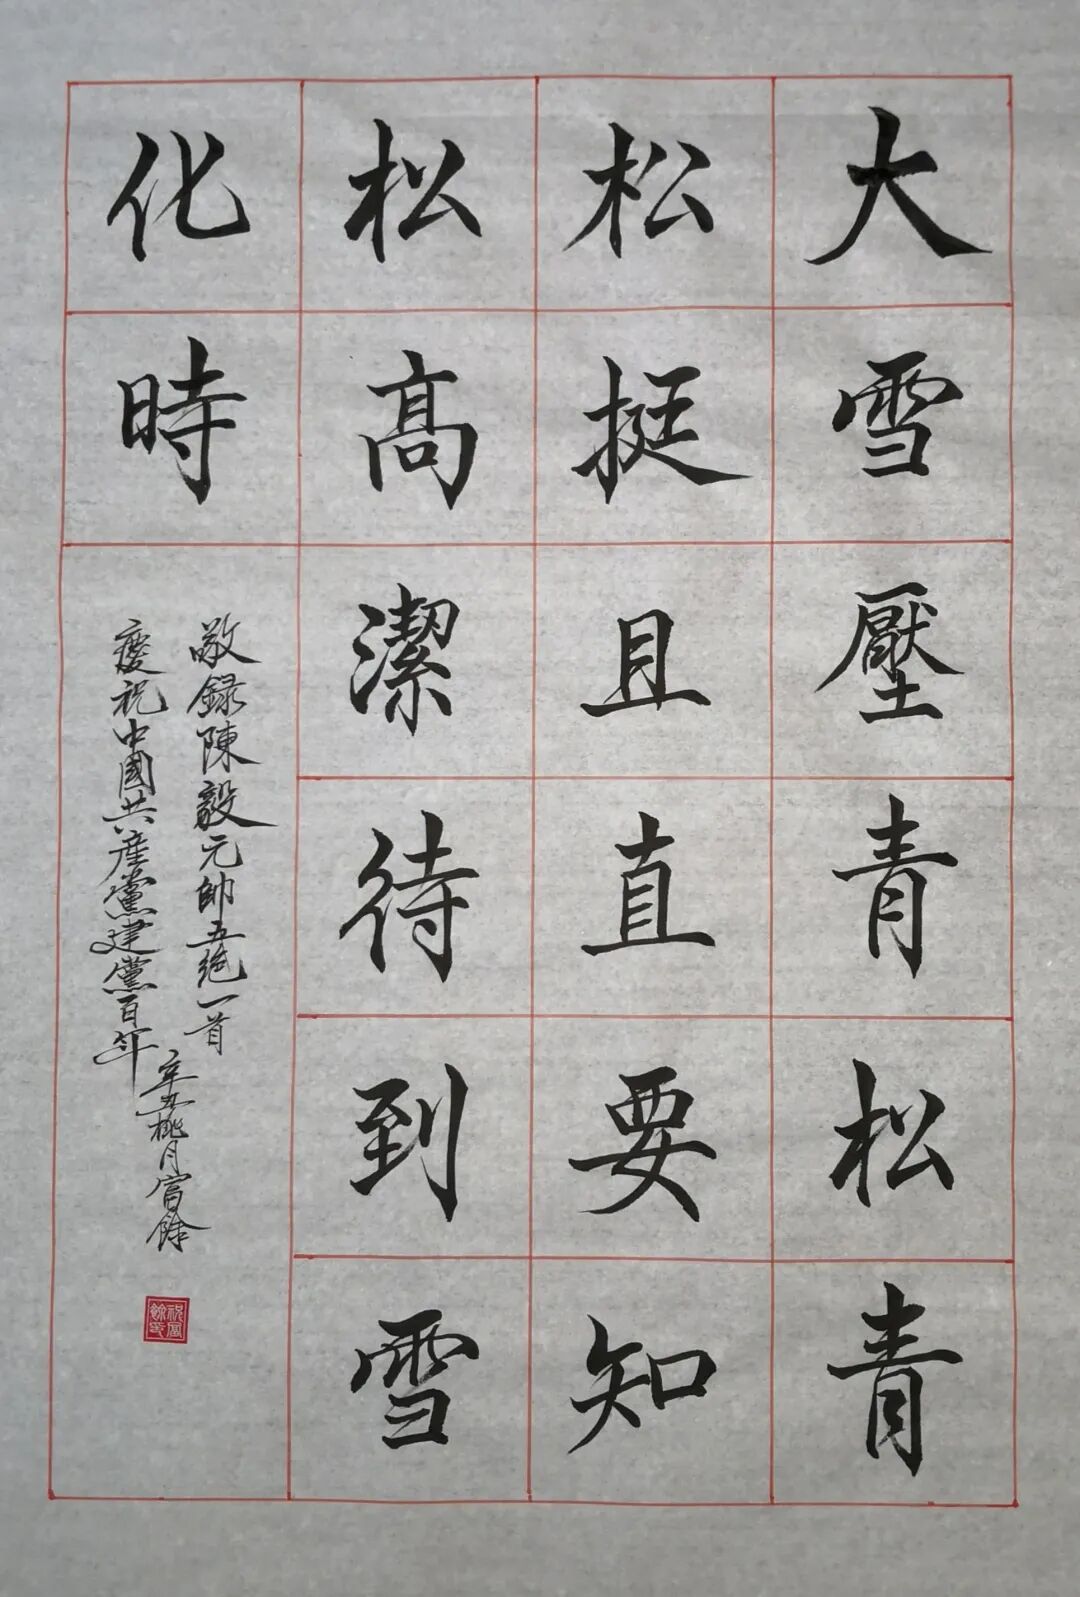 大雪壓青松青
松挺且直要知
松高潔待到雪
化時
敬録陳毅元帥五絕一首
慶祝中國共產黨建黨百年
辛丑桃月富餘
祝富
餘印